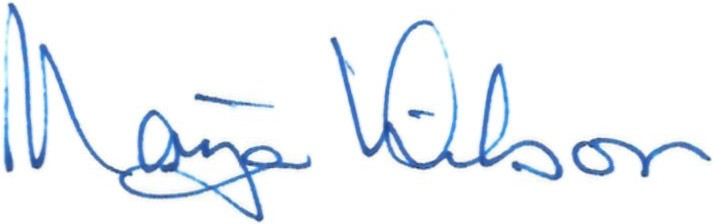 Maija Wilson